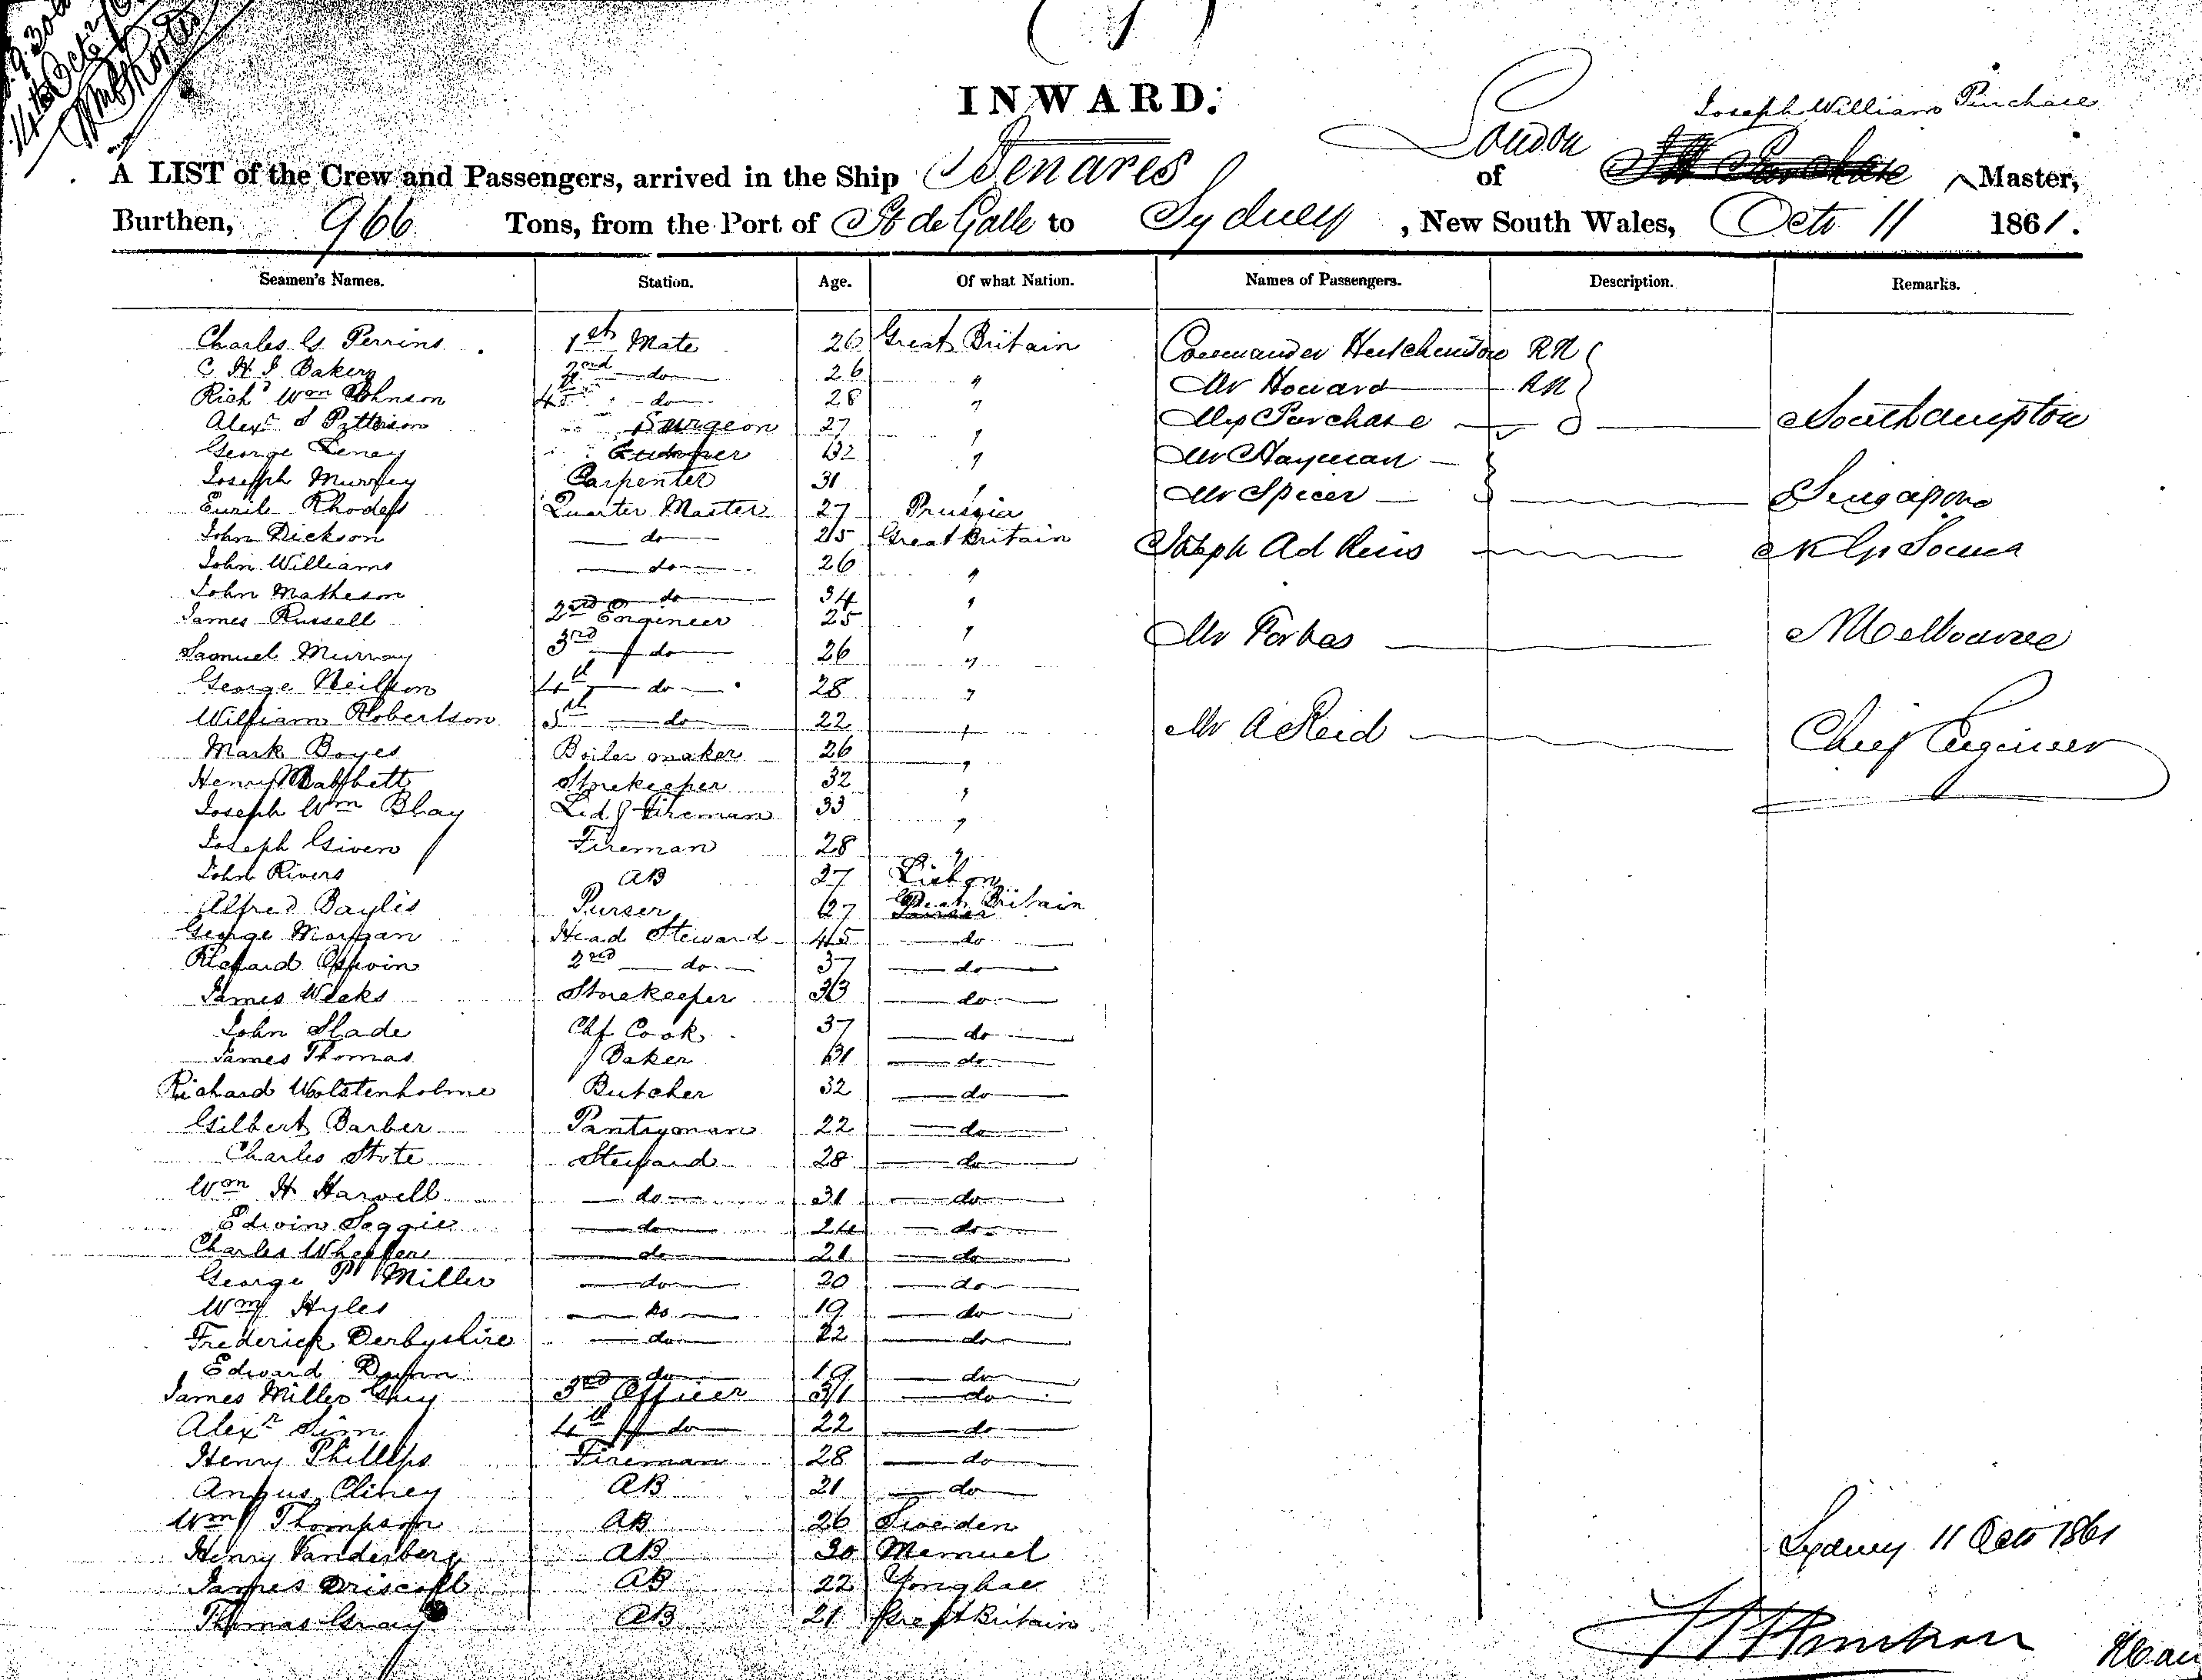 INWARD.
Joseph William Purchase
A LIST of the Crew and Passengers, arrived in the Ship Benares of London Master,
Burthen, 966 Tons, from the Port of Pt de Galle to Sydney, New South Wales, Octo 11 1861.
Seamen's Names. Station. Age. Of what Nation. Names of Passengers. Description. Remarks.
Charles G Perrins 1st Mate 26 Great Britain Commander Hutchinson RN
C H S Baker 2nd do 26 " Mr Howard RN
Richd Wm Johnson 4th do 28 "
Alexr S Patterson Surgeon 27 " Mrs Purchase Southampton
George Leney Gunner 32 " Mr Hayman
Joseph Murfey Carpenter 31 " Mr Spicer Singapore
Emile Rhodes Quarter Master 27 Prussia
John Dickson do 25 Great Britain Joseph Adkins K Gg Sound
John Williams do 26 "
John Matheson do 34 "
James Russell 2nd Engineer 25 " Mr Forbes Melbourne
Samuel Murray 3rd do 26 "
George Neilson 4th do 28 "
William Robertson 5th do 22 " Mr A Reid Chief Engineer
Mark Boyes Boiler maker 26 "
Henry Storekeeper 32 "
Joseph Wm Bhay Ledg Fireman 33 "
Joseph Given Fireman 28 "
John Rivers AB 27 Lisbon
Alfred Baylis Purser 27 Great Britain
George Morgan Head Steward 45 do
Richard 2nd do 37 do
James Weeks Storekeeper 33 do
John Slade Chf Cook 37 do
James Thomas Baker 31 do
Richard Wolstenholme Butcher 32 do
Gilbert Barber Pantryman 22 do
Charles Stote Steward 28 do
Wm H Harvell do 31 do
Edwin Seggie do 24 do
Charles Wheeler do 21 do
George P Miller do 20 do
Wm Hyles do 19 do
Frederick Derbyshire do 22 do
Edward Dunn do 19 do
James Miller Guy 3rd Officer 31 do
Alexr Sim 4th do 22 do
Henry Phillips Fireman 28 do
Angus Cliney AB 21 do
Wm Thompson AB 26 Sweden
Henry Vanderberg AB 30 Memuel
James Driscoll AB 22 Yonghae
Thomas Gray AB 21 Great Britain
Sydney 11 Octo 1861